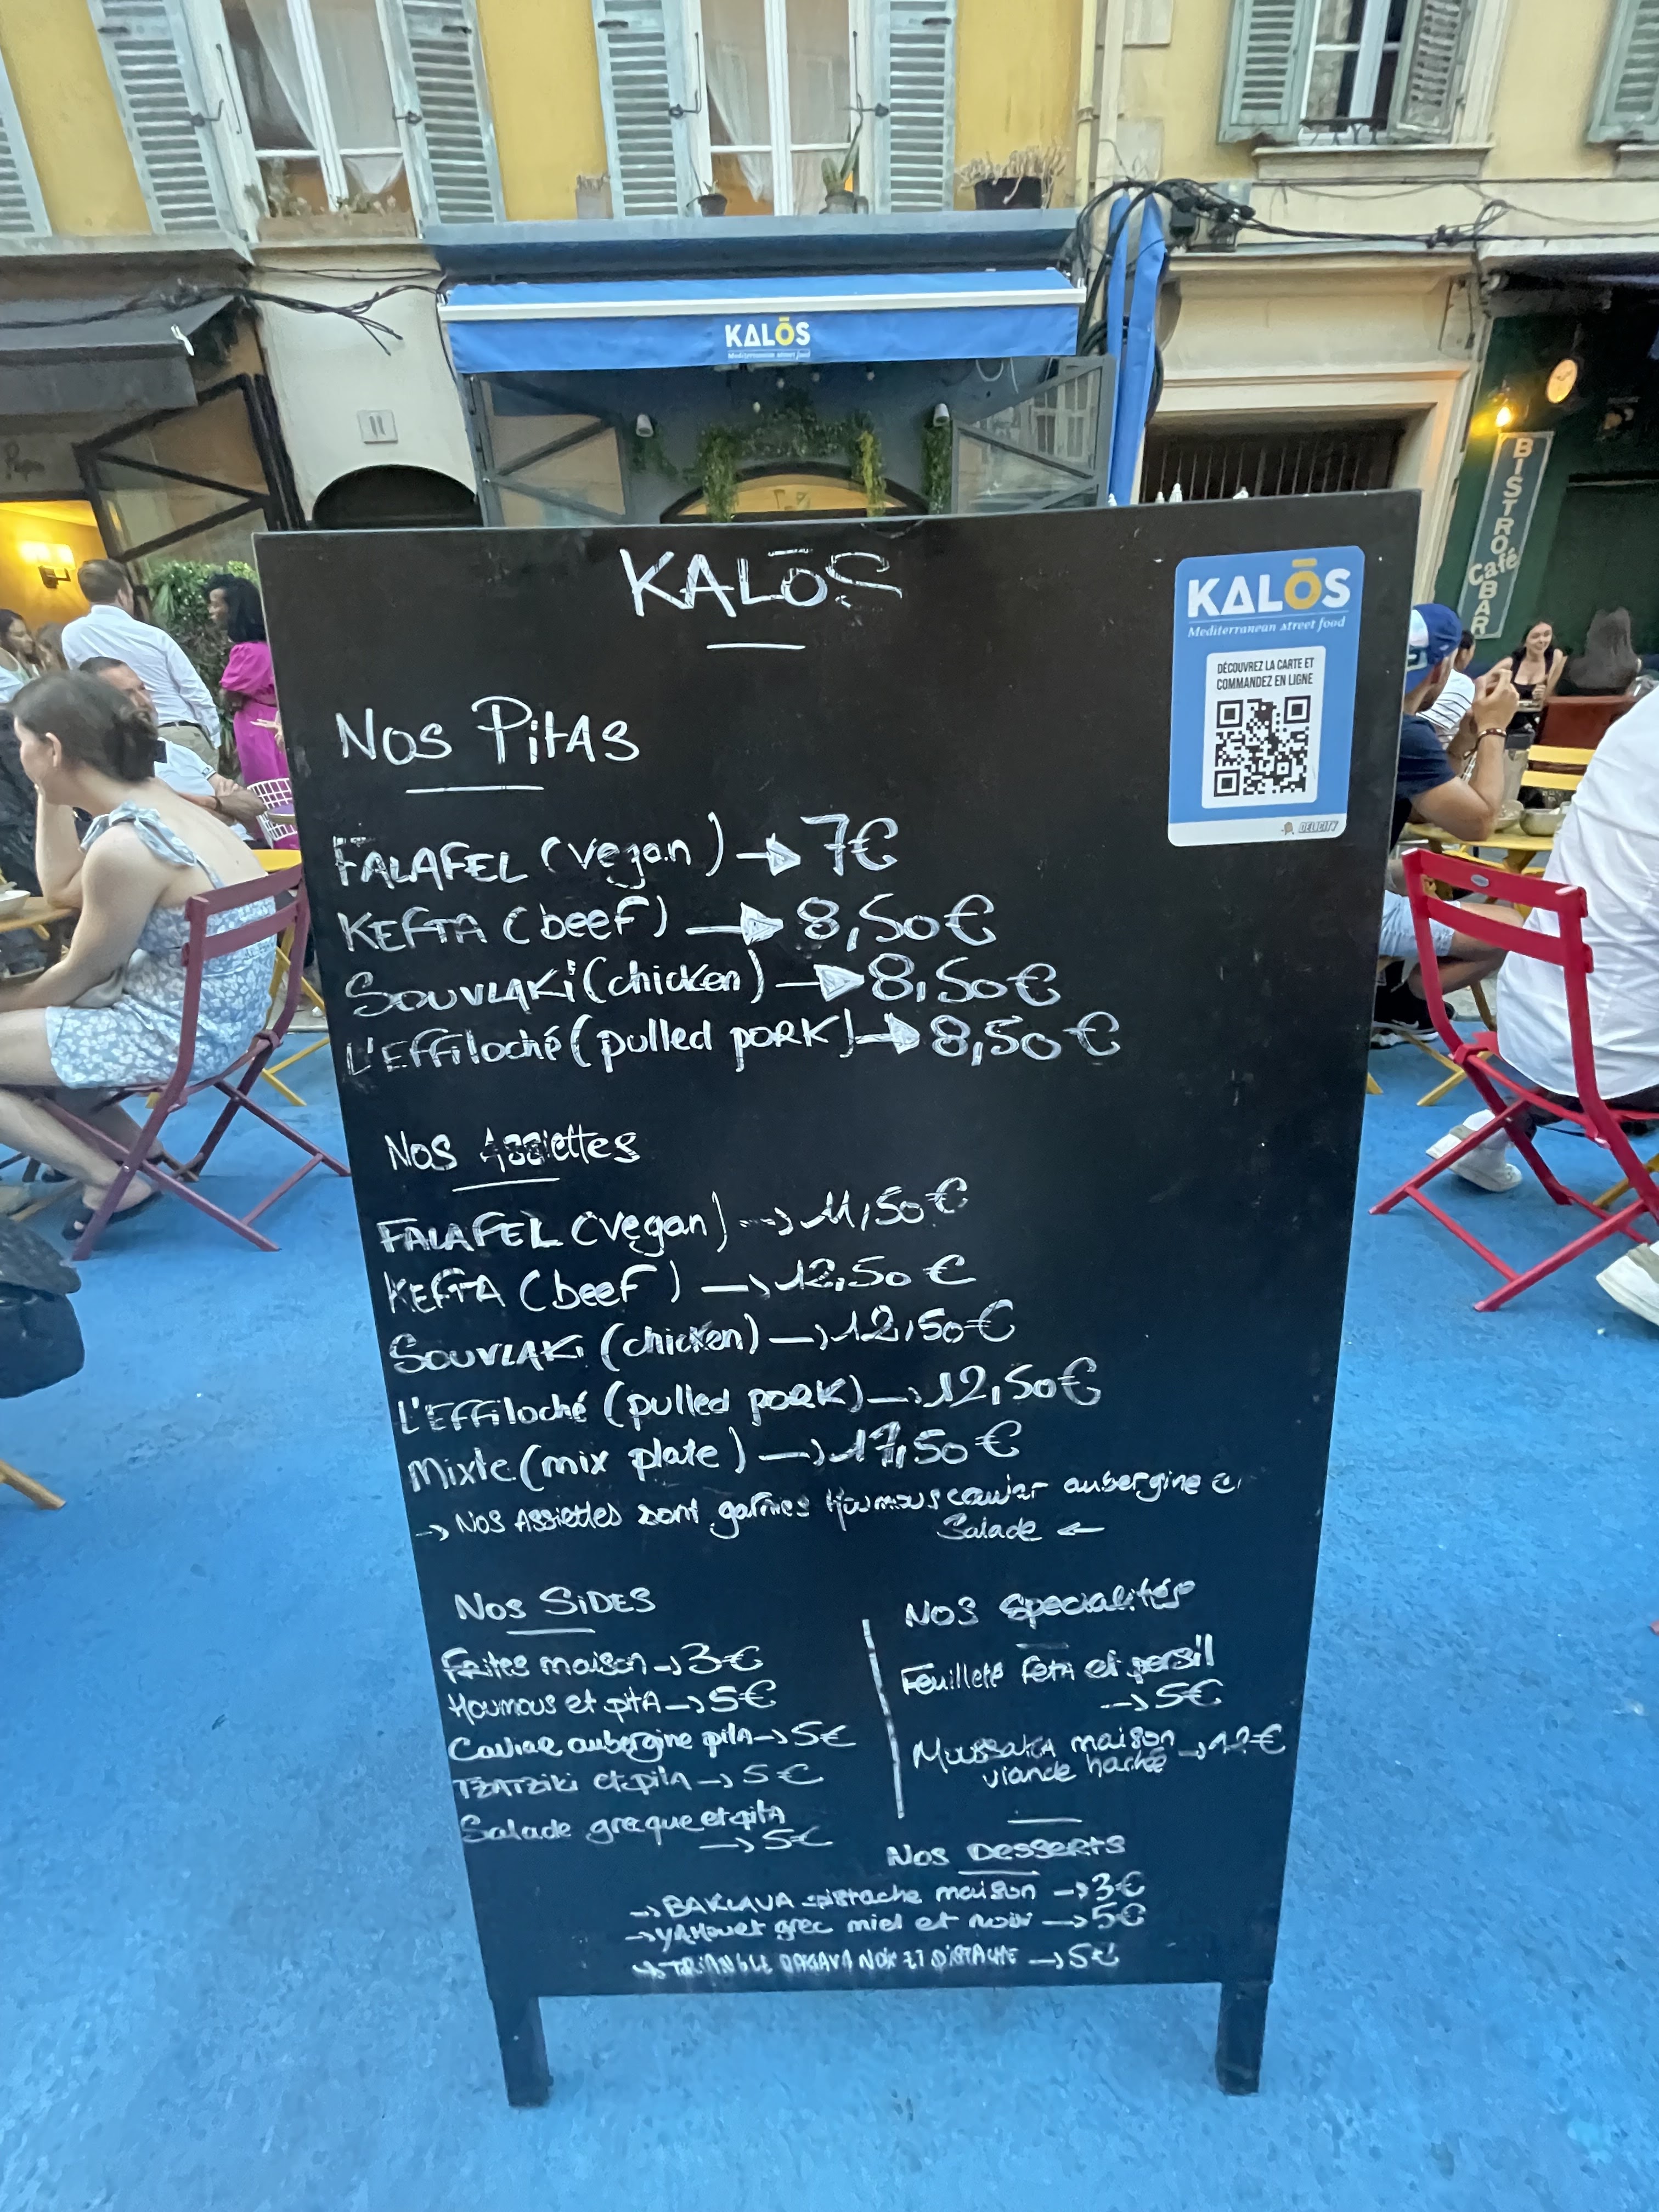 KALŌS
Mediterranean street food
BISTRO
Café
BAR
KALŌS
KALŌS
Mediterranean street food
DÉCOUVREZ LA CARTE ET
COMMANDEZ EN LIGNE
DELICITY
Nos Pitas
FALAFEL (vegan) → 7€
KEFTA (beef) → 8,50€
SOUVLAKI (chicken) → 8,50€
L'Effiloché (pulled pork) → 8,50€
Nos Assiettes
FALAFEL (vegan) → 11,50€
KEFTA (beef) → 12,50€
SOUVLAKI (chicken) → 12,50€
L'Effiloché (pulled pork) → 12,50€
Mixte (mix plate) → 17,50€
→ Nos Assiettes sont garnies Houmous caviar aubergine et
Salade ←
Nos SiDES
Frites maison → 3€
Houmous et pita → 5€
Caviar aubergine pita → 5€
TZATZiki et pita → 5€
Salade grecque et pita
→ 5€
Nos Specialités
Feuilleté Feta et persil
→ 5€
Moussaka maison → 12€
viande hachée
Nos Desserts
→ BAKLAVA pistache maison → 3€
→ YAHourt grec miel et noix → 5€
→ TRiANGLE NOIX ET PISTACHE → 5€